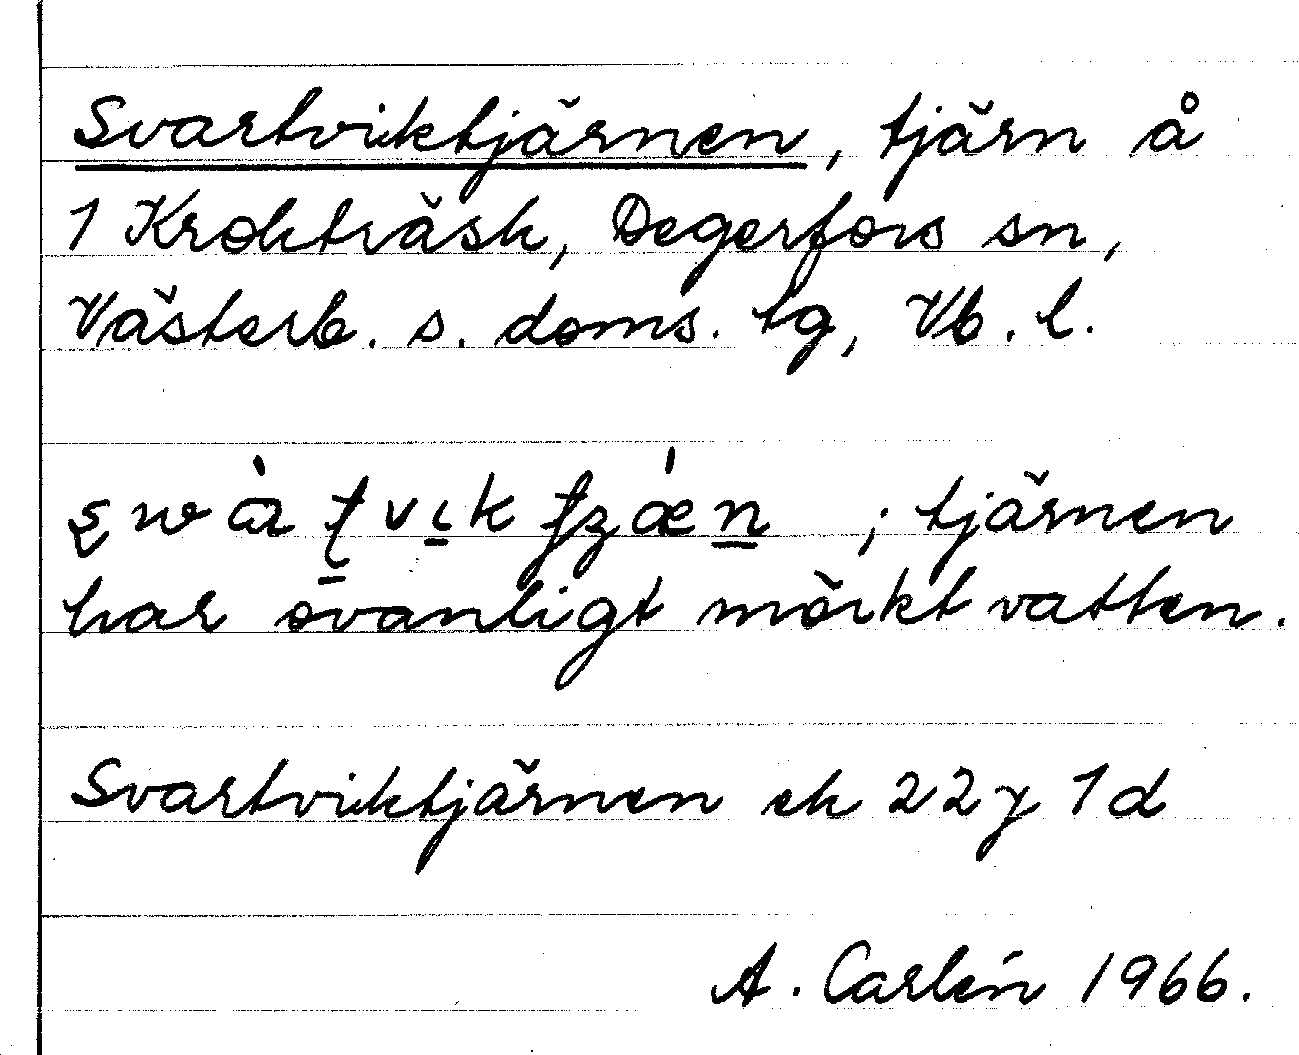 Svartviktjärnen, tjärn å
1 Krokträsk, Degerfors sn,
Västerb. s. doms. tg, Vb. l.
; tjärnen
har ovanligt mörkt vatten.
Svartviktjärnen ek 22 j 1 d
A. Carlén 1966.